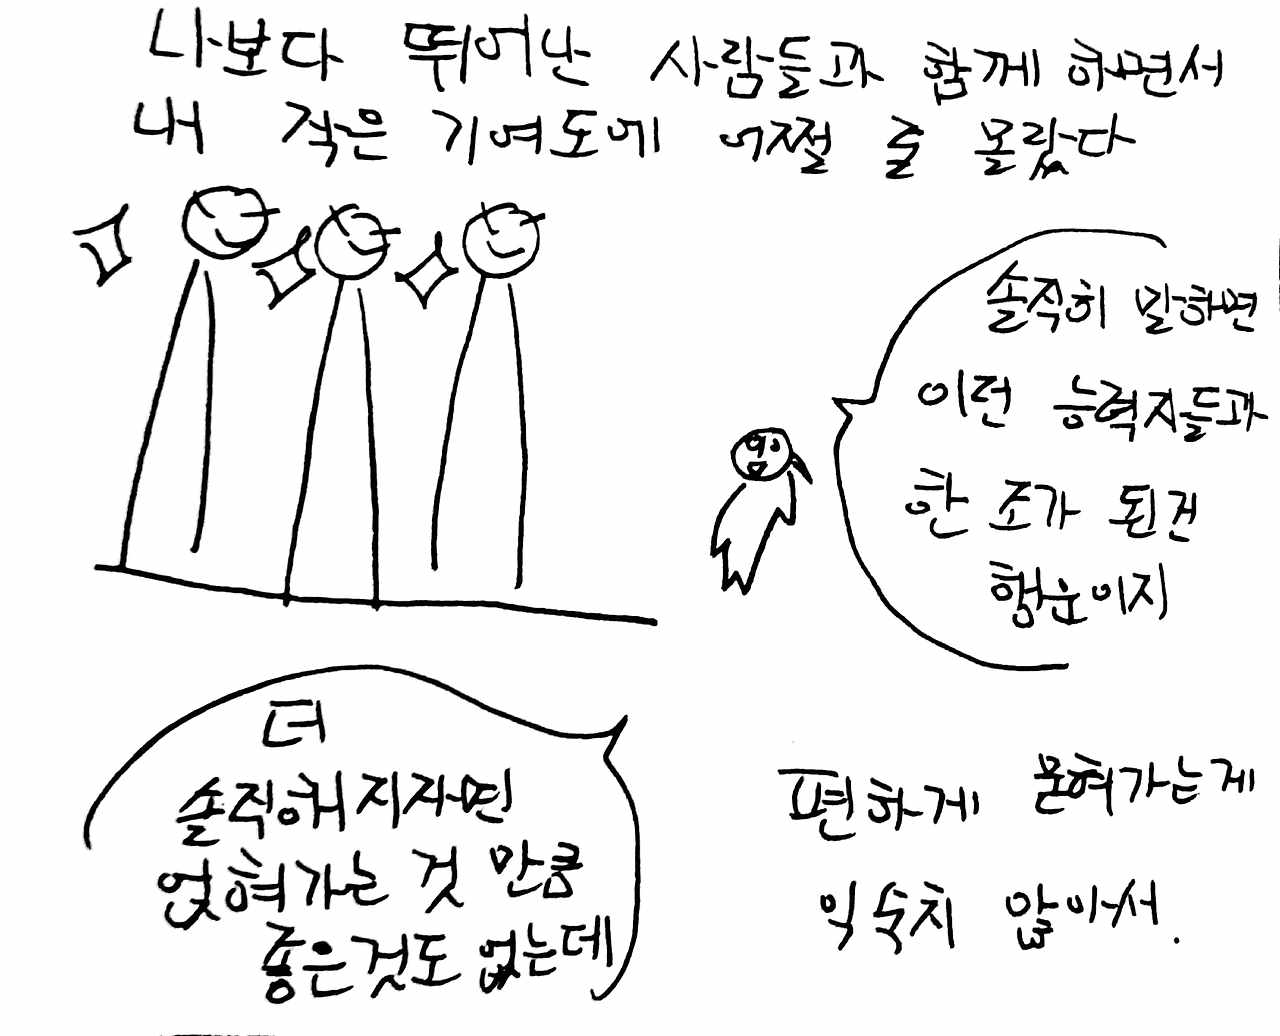 나보다 뛰어난 사람들과 함께 하면서
내 적은 기여도에 어쩔 줄 몰랐다
솔직히 말하면
이런 능력자들과
한 조가 된건
행운이지
더
솔직해지자면
얹혀가는 것 만큼
좋은것도 없는데
편하게 묻혀가는게
익숙치 않아서.